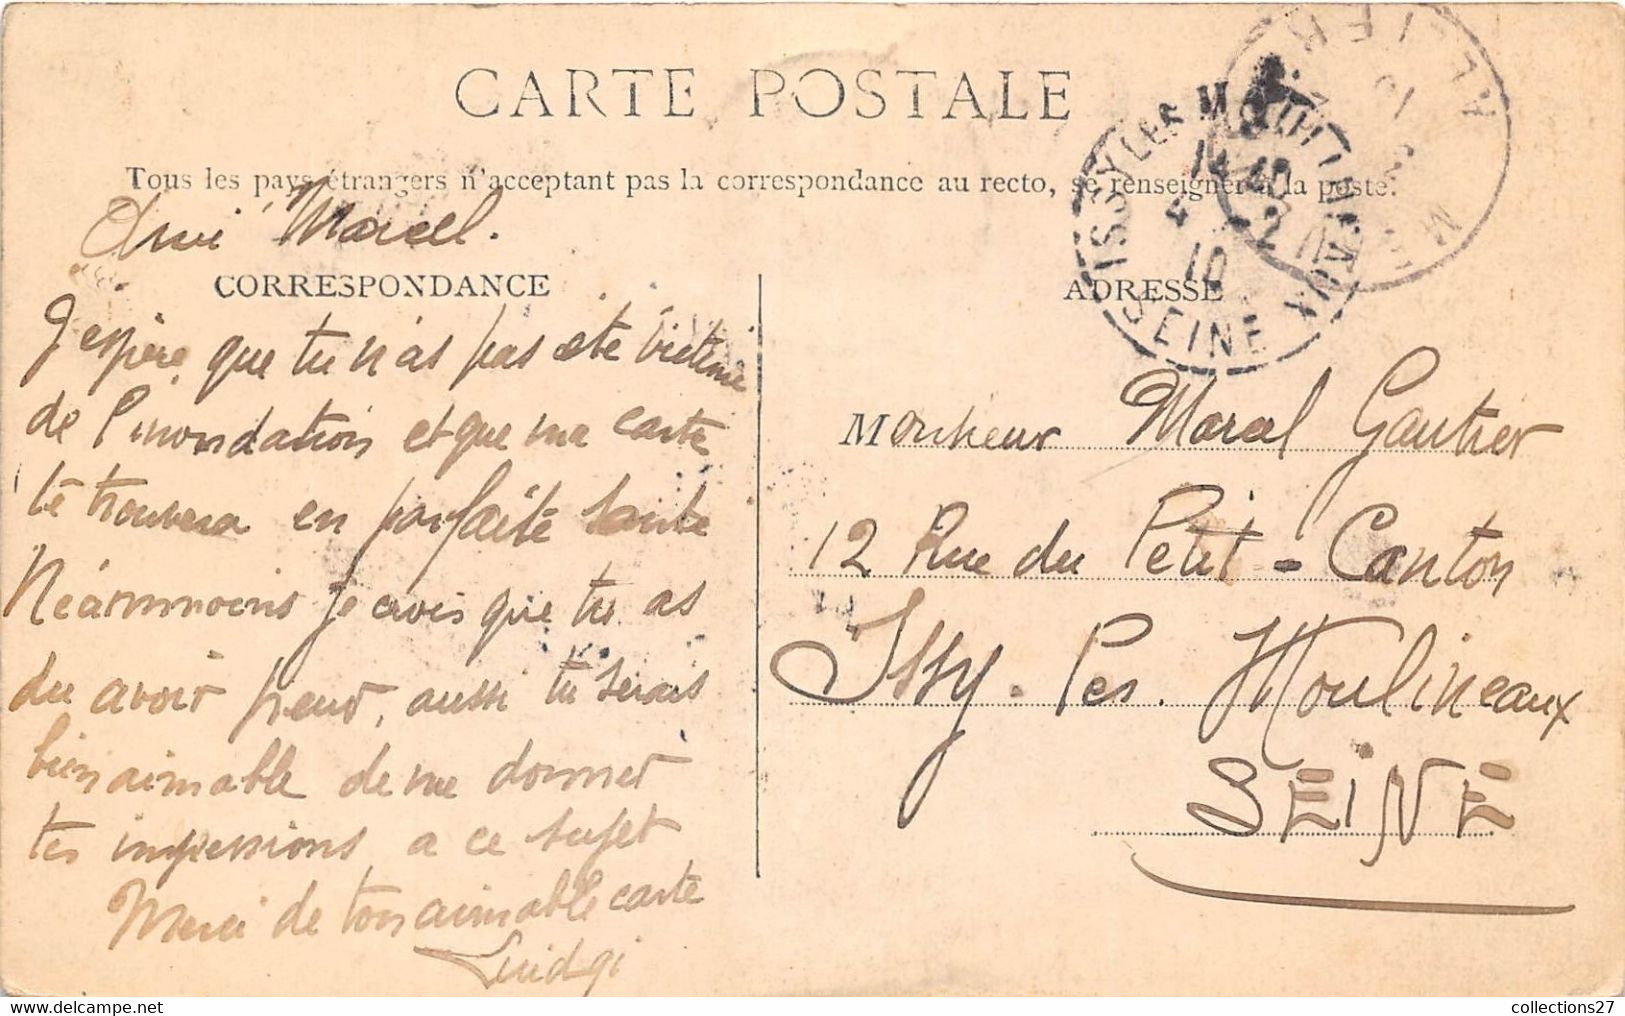 CARTE POSTALE
Tous les pays étrangers n'acceptant pas la correspondance au recto, se renseigner à la poste.
Ami Marcel.
CORRESPONDANCE
J'espère, que tu n'as pas été victime
de l'inondation et que ma carte
te trouvera en parfaite santé
Néanmmoins je crois que tu as
du avoir peur, aussi tu serais
bien aimable de me donner
tes impressions a ce sujet
Merci de ton aimable carte
Luidgi
ADRESSE
Monsieur Marcel Gautier
12 Rue du Petit - Canton
Issy. les. Moulineaux
SEINE
ISSY LES MOULINEAUX
SEINE
ALGIER
collections27